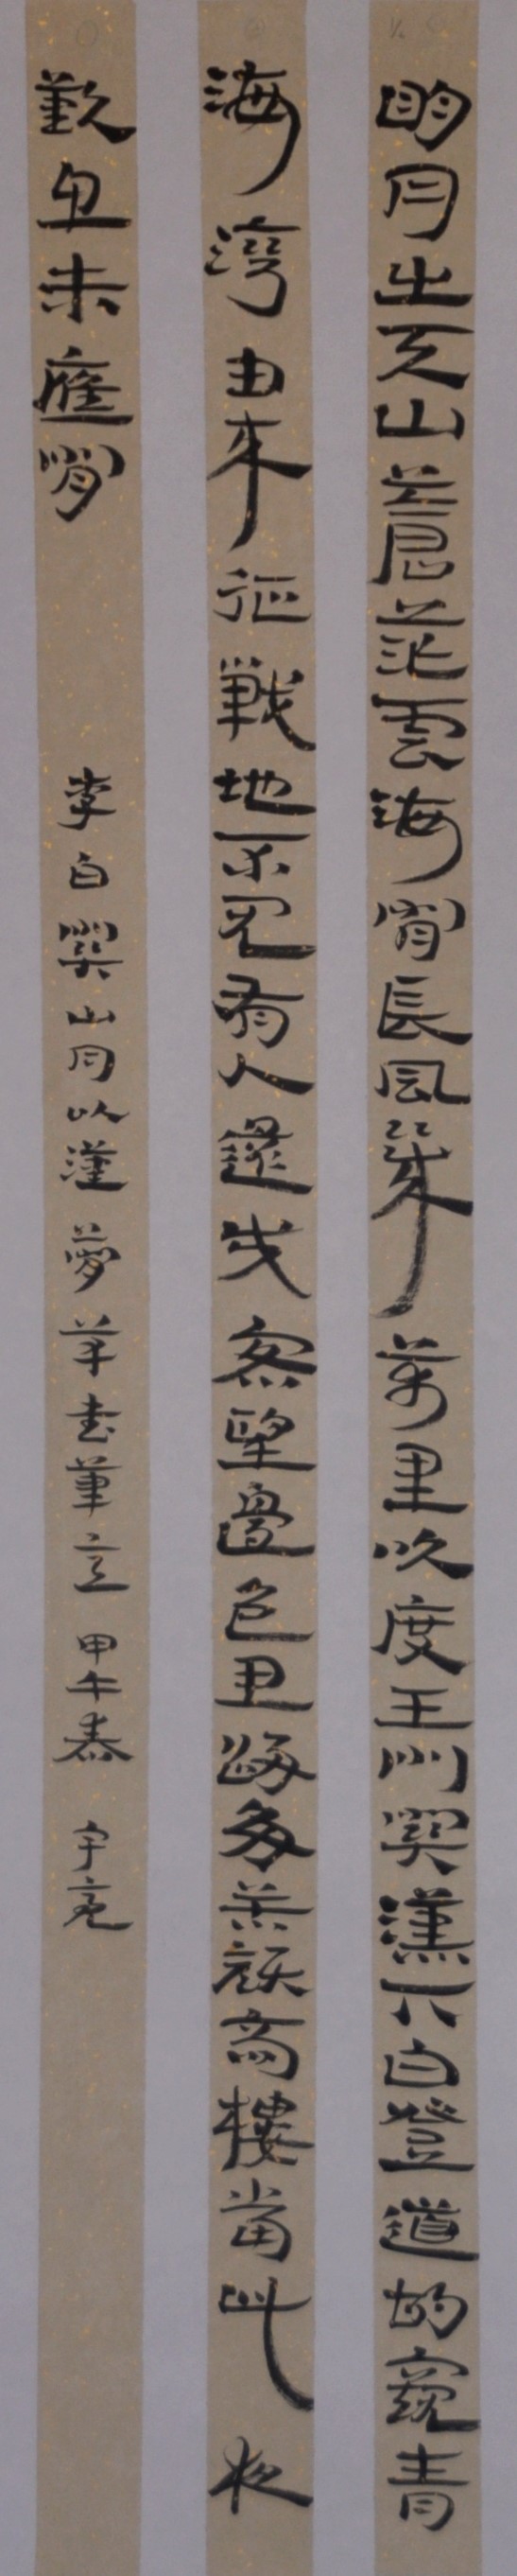 明月出天山蒼茫雲海間長風幾萬里吹度玉門關漢下白登道胡窺青
海灣由來征戰地不見有人還戍客望邊色思歸多苦顏高樓當此夜
歎息未應閒
李白關山月以漢 夢羊書筆意 甲午春 宇亮